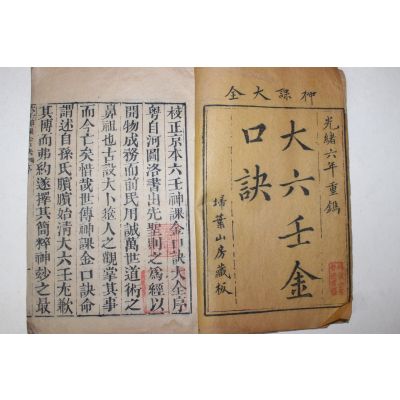 神課大全
光緒六年重鐫
大六壬金
口訣
埽葉山房藏板
校正京本六壬神課金口訣大全序
粤自河圖洛書出先聖則之為經以
開物成務而前民用誠萬世道術之
鼻祖也古設大卜簭人之觀掌其事
而今亡矣惜哉世傳神課金口訣命
謂述自孫氏臏臏始清大六壬尢歉
其博而弗約遂擇其簡粹神妙之最